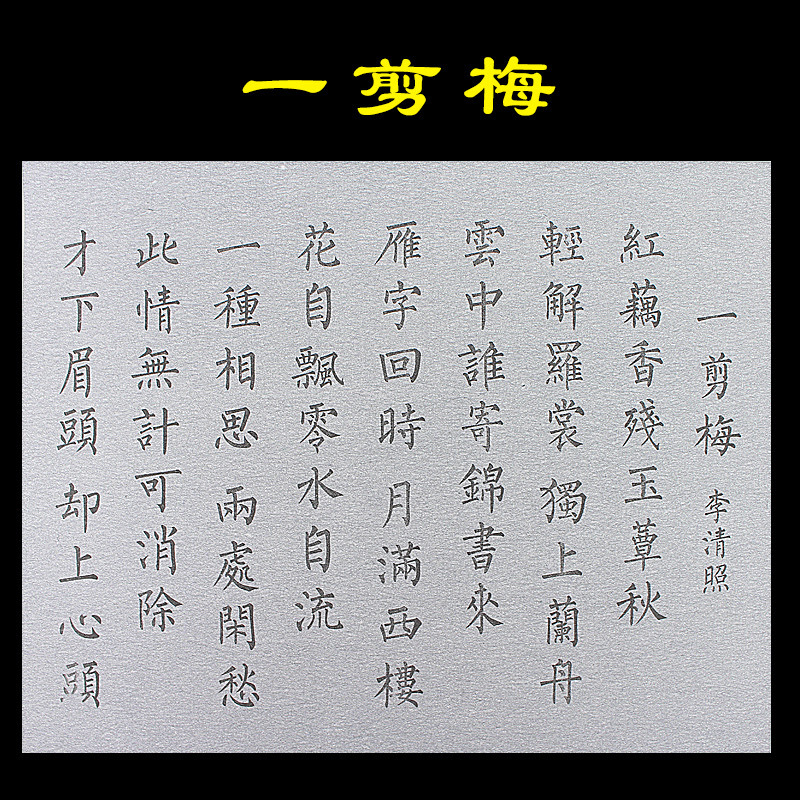 一剪梅
一剪梅 李清照
紅藕香殘玉蕈秋
輕解羅裳 獨上蘭舟
雲中誰寄錦書來
雁字回時 月滿西樓
花自飄零水自流
一種相思 兩處閑愁
此情無計可消除
才下眉頭 却上心頭